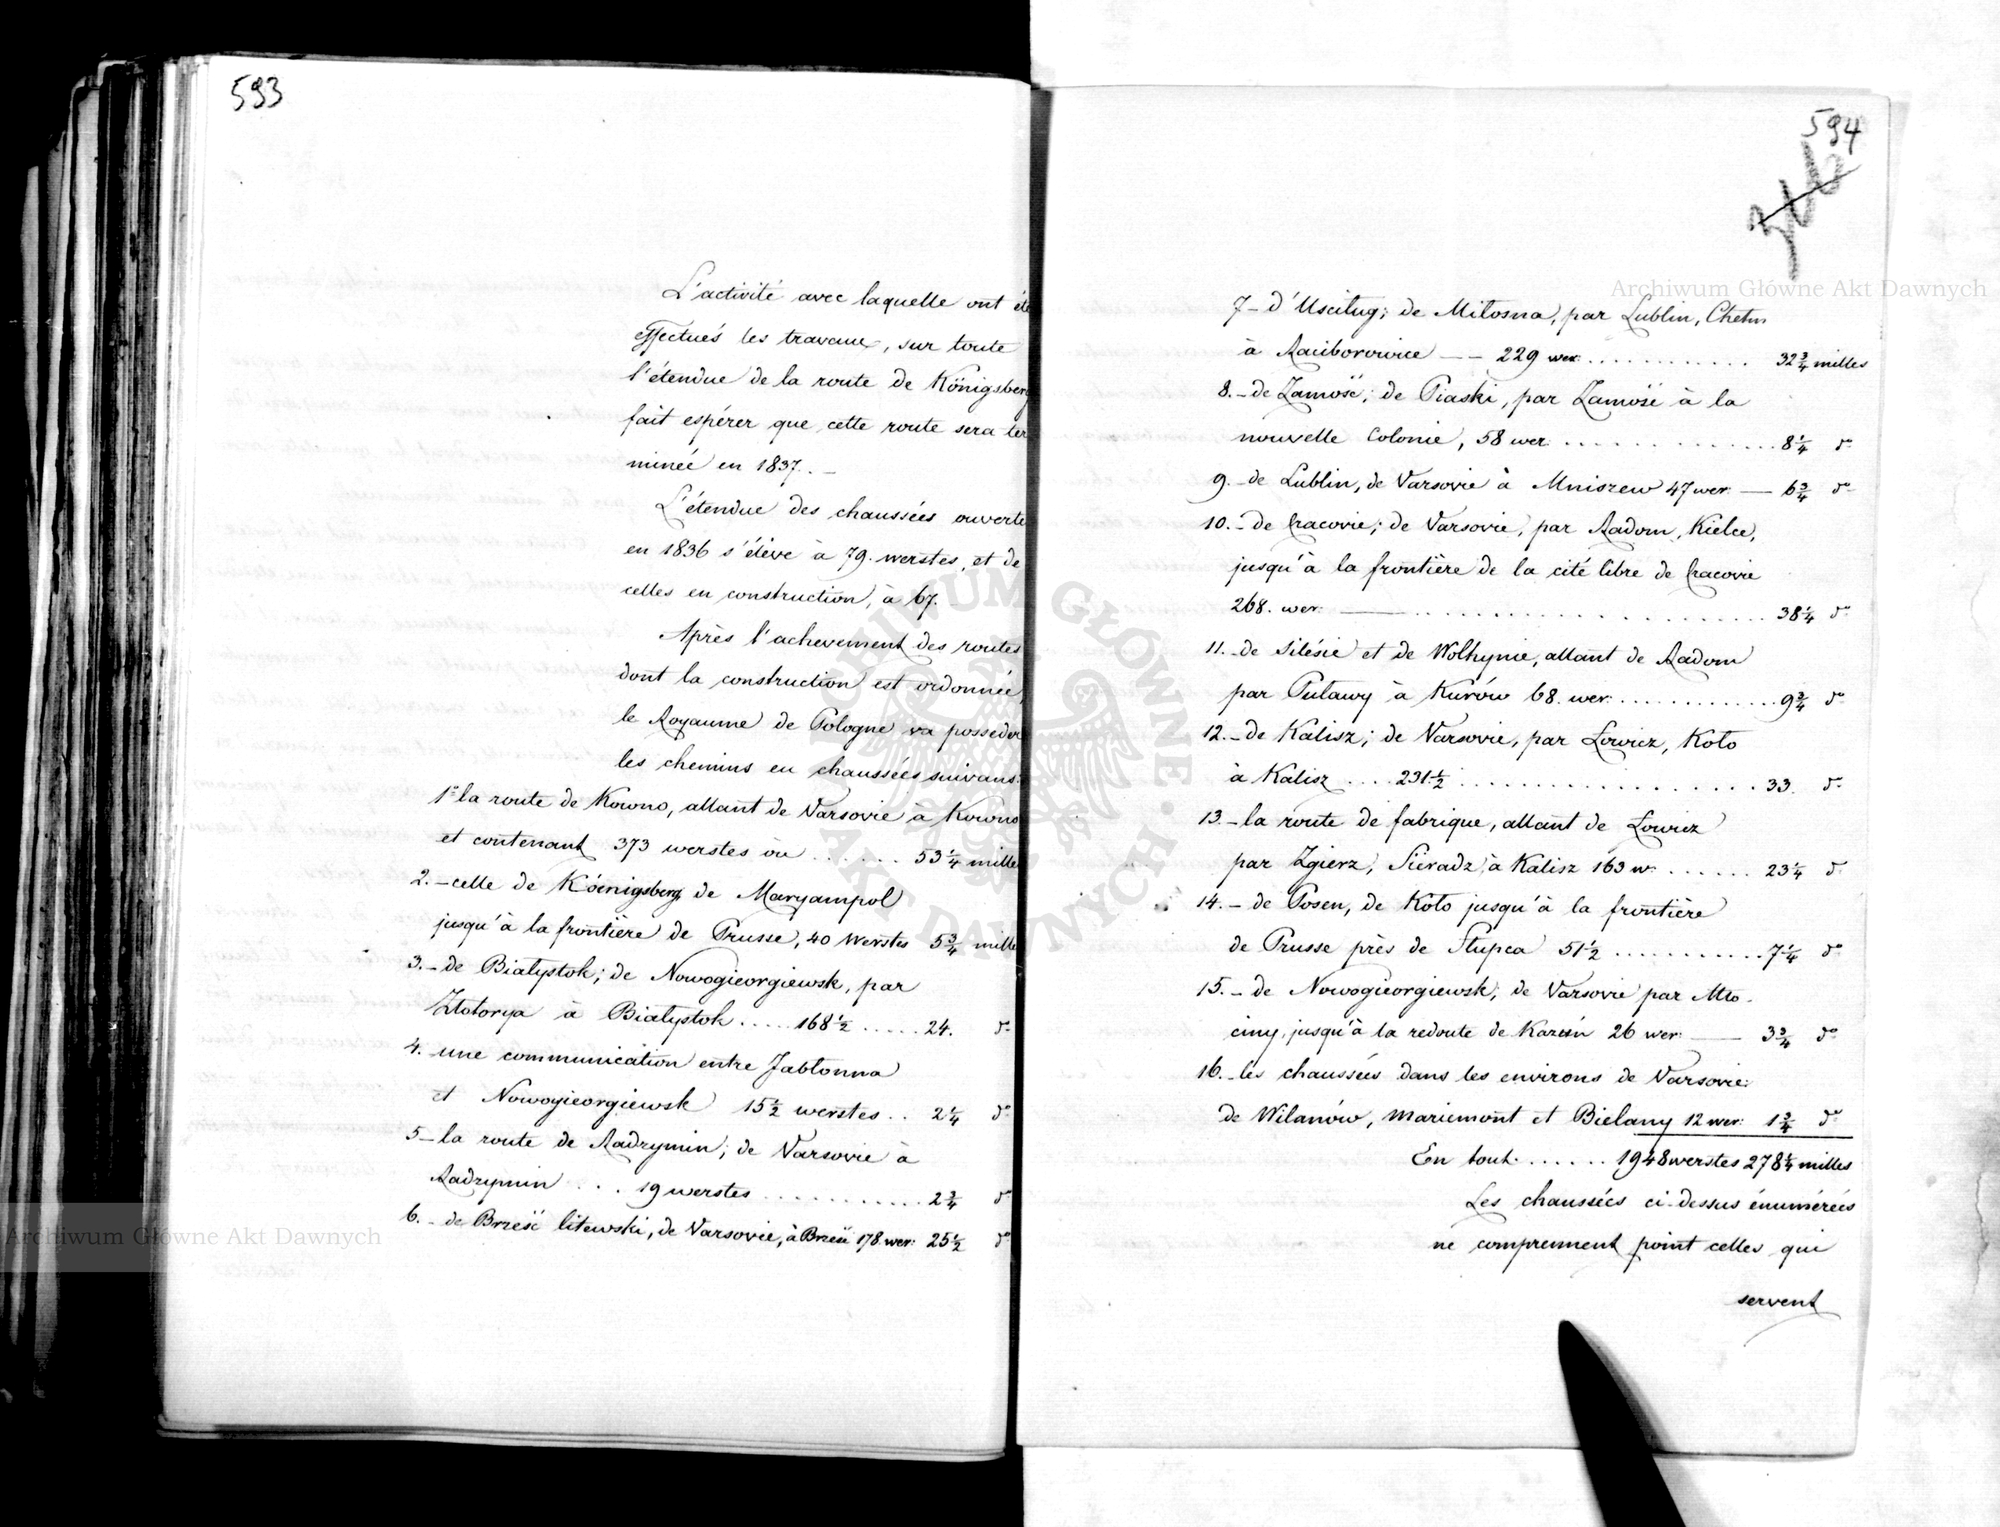 593
L'activité avec laquelle ont été
effectués les travaux, sur toute
l'étendue de la route de Königsberg
fait espérer que cette route sera ter
minée en 1837. –
L'étendue des chaussées ouverte
en 1836 s'élève à 79. werstes, et de
celles en construction, à 67.
Après l'achevement des routes
dont la construction est ordonnée,
le Royaume de Pologne va posseder
les chemins en chaussées suivans:
1º la route de Kowno, allant de Varsovie à Kowno
et contenant 373 werstes ou ...... 53 1/4 mille
2. – celle de Kóenigsberg de Maryampol
jusqu'à la frontière de Prusse, 40 werstes 5 3/4 mille
3. – de Białystok; de Nowogieorgiewsk, par
Złotorya à Białystok ..... 168 1/2 ..... 24. dº
4. une communication entre Jabłonna
et Nowogieorgiewsk 15 1/2 werstes .. 2 1/4 dº
5 – la route de Radzymin; de Varsovie à
Radzymin ... 19 werstes .......... 2 3/4 dº
6. – de Brześć litewski, de Varsovie, à Brześć 178 wer: 25 1/2 dº
594
7 – d'Uscilug; de Miłosna, par Lublin, Chełm
à Raciborowice —— 229 wer: ............ 32 3/4 milles
8. – de Zamość; de Piaski, par Zamość à la
nouvelle Colonie, 58 wer. ............ 8 1/4 dº
9. – de Lublin, de Varsovie à Mniszew 47 wer. — 6 3/4 dº
10. – de Cracovie; de Varsovie, par Radom, Kielce,
jusqu'à la frontière de la cité libre de Cracovie
268. wer. —— .................. 38 1/4 dº
11. – de Silésie et de Wolhynie, allant de Radom
par Puławy à Kurów 68. wer. ............ 9 3/4 dº
12. – de Kalisz; de Varsovie, par Łowicz, Koło
à Kalisz .... 231 1/2 .................. 33. dº
13. – la route de fabrique, allant de Łowicz
par Zgierz, Sieradz, à Kalisz 163 w. ...... 23 1/4 dº
14. – de Posen, de Koło jusqu'à la frontière
de Prusse près de Słupca 51 1/2 ........... 7 1/4 dº
15. – de Nowogieorgiewsk; de Varsovie par Mło-
ciny, jusqu'à la redoute de Kazuń 26 wer: —— 3 3/4 dº
16. – les chaussées dans les environs de Varsovie:
de Wilanów, Mariemont et Bielany 12 wer: 1 3/4 dº
En tout. ...... 1948 werstes 278 1/4 milles
Les chaussées ci-dessus énumérées
ne comprennent point celles qui
servent
Archiwum Główne Akt Dawnych
Archiwum Główne Akt Dawnych
ARCHIWUM GŁÓWNE • AKT DAWNYCH •